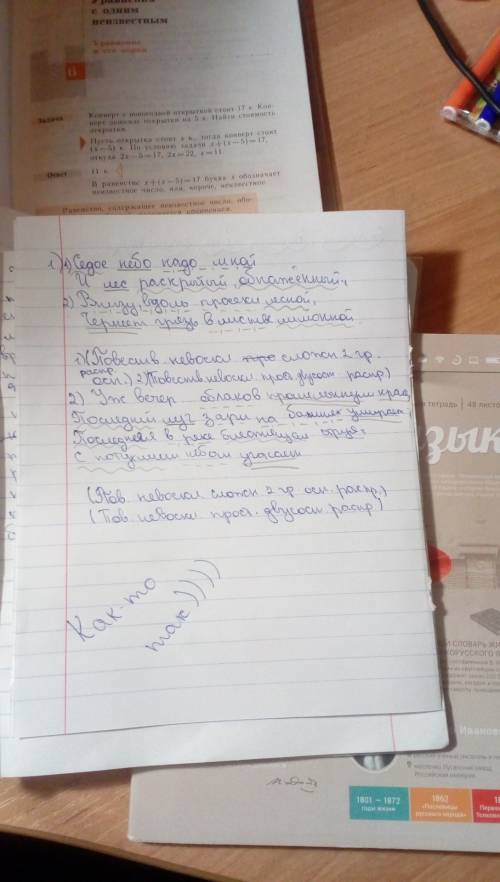 Уравнения
с одним
неизвестным
Уравнение
и его корни
6
Задача
Конверт с новогодней открыткой стоит 17 к. Кон-
верт дешевле открытки на 5 к. Найти стоимость
открытки.
Пусть открытка стоит x к., тогда конверт стоит
(x−5) к. По условию задачи x+(x−5)=17,
откуда 2x−5=17, 2x=22, x=11.
Ответ
11 к.
В равенстве x+(x−5)=17 буква x обозначает
неизвестное число, или, короче, неизвестное.
Равенство, содержащее неизвестное число, обо-
1) 1) Седое небо надо мной
И лес раскрытый, обнажённый,
2) Внизу, вдоль просеки лесной,
Чернеет грязь в листве лимонной.
1) (Повеств. невоскл. сложн 2 гр.
распр.
осн.) 2 Повеств. невоскл. прост. двусосн. распр)
2) Уж вечер облаков край,
Последний луч зари на башнях умирает;
Последняя в реке струя,
С потухшим небом угасает
(Пов. невоскл. сложн. 2 гр. осн. распр.)
(Пов. невоскл. прост. двусосн. распр.)
Как-то
так )))))
тетрадь
48 листов
зык
И СЛОВАРЬ ЖИ
КОРУССКОГО
Иванови
местечко Луганский завод,
Российская империя
1801 – 1872
годы жизни
1862
«Пословицы
русского народа»